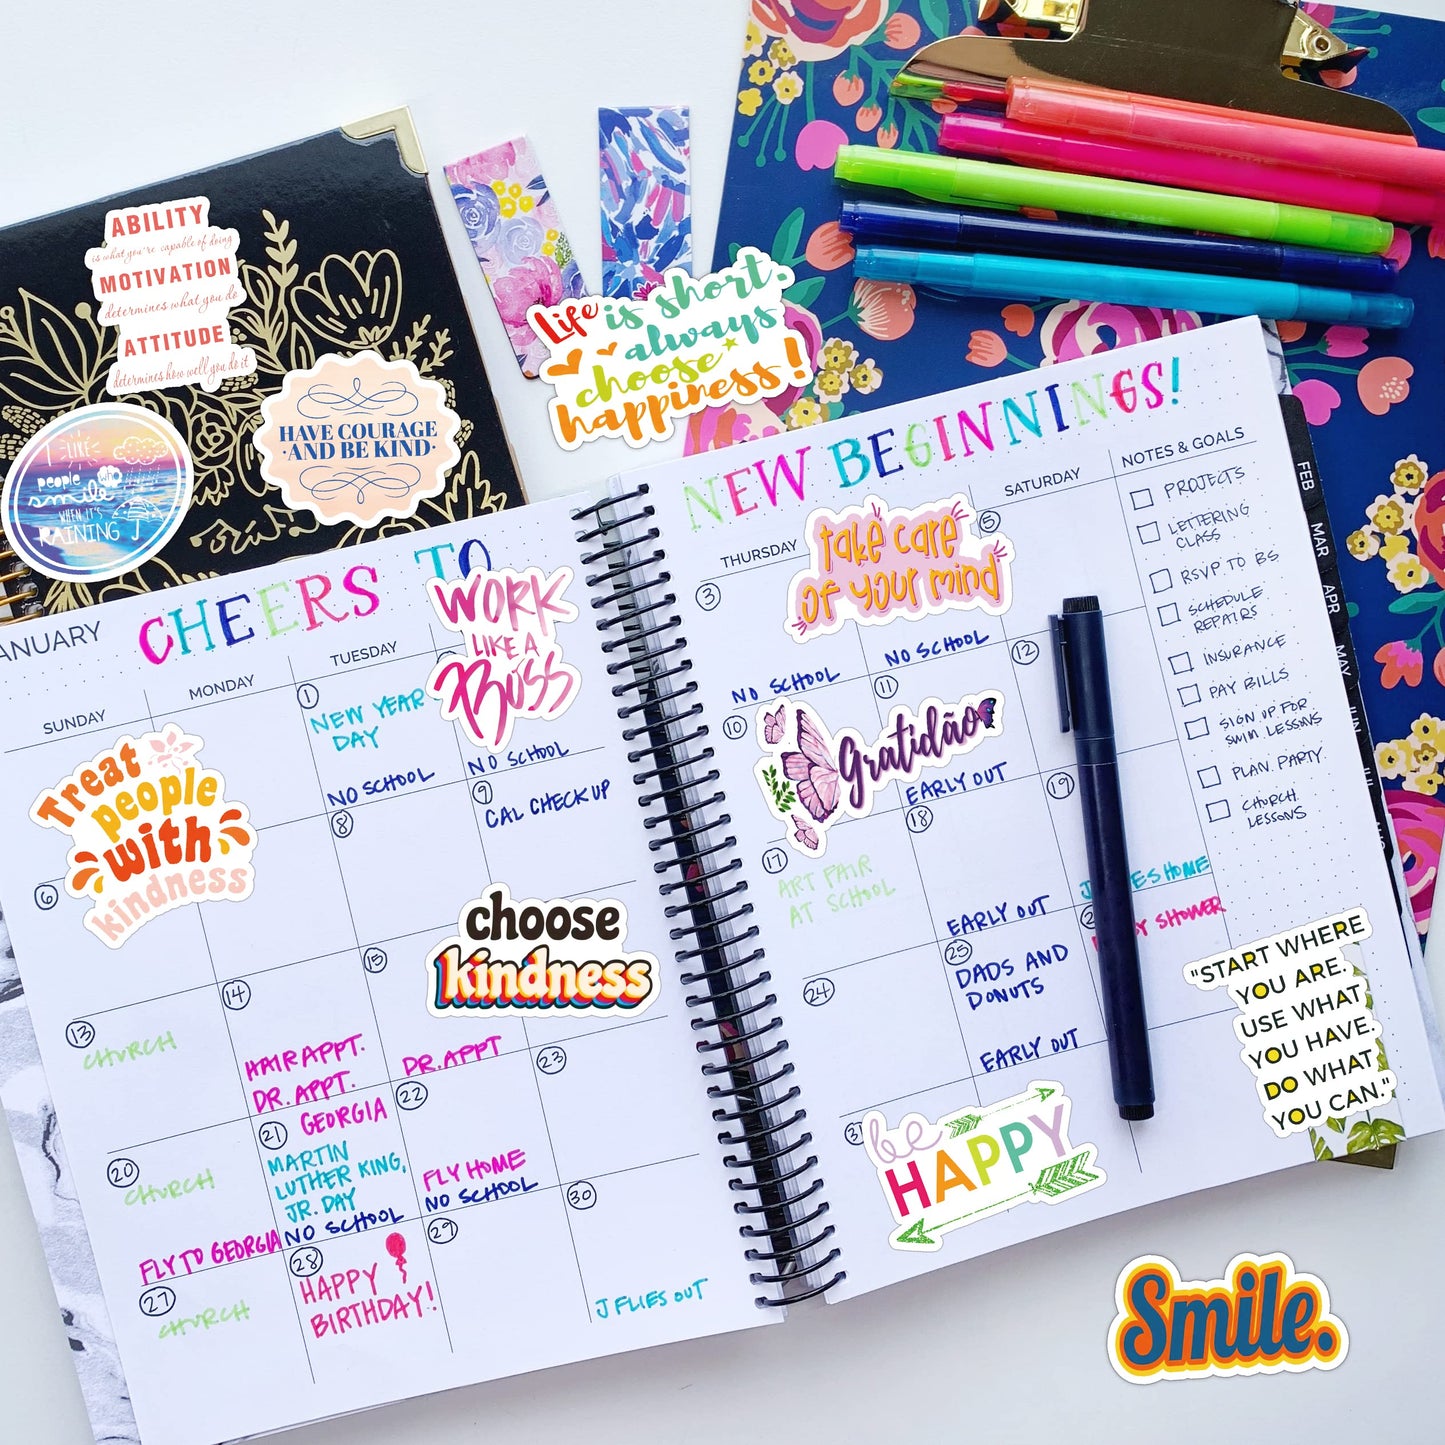 ABILITY
is what you're capable of doing
MOTIVATION
determines what you do
ATTITUDE
determines how well you do it
HAVE COURAGE
·AND BE KIND·
I LIKE
people who
smile
WHEN IT'S
RAINING
Life is short.
always
choose
happiness!
CHEERS TO
NEW BEGINNINGS!
ANUARY
SUNDAY
MONDAY
TUESDAY
THURSDAY
SATURDAY
NOTES & GOALS
WORK
LIKE A
BOSS
take care
of your mind
Treat
people
with
kindness
1
NEW YEAR
DAY
NO SCHOOL
NO SCHOOL
3
NO SCHOOL
NO SCHOOL
5
6
8
9
CAL CHECK UP
10
11
EARLY OUT
12
Gratidão
choose
kindness
13
CHURCH
14
HAIR APPT.
DR. APPT.
15
DR. APPT
17
ART FAIR
AT SCHOOL
18
EARLY OUT
19
HOME
20
CHURCH
FLY TO GEORGIA
21
GEORGIA
MARTIN
LUTHER KING,
JR. DAY
NO SCHOOL
22
FLY HOME
NO SCHOOL
23
24
25
DADS AND
DONUTS
EARLY OUT
SHOWER
27
CHURCH
28
HAPPY
BIRTHDAY!
29
30
J FLIES OUT
31
be
HAPPY
PROJECTS
LETTERING
CLASS
RSVP TO BS
SCHEDULE
REPAIRS
INSURANCE
PAY BILLS
SIGN UP FOR
SWIM LESSONS
PLAN PARTY
CHURCH
LESSONS
FEB
MAR
APR
MAY
JUN
JUL
"START WHERE
YOU ARE.
USE WHAT
YOU HAVE.
DO WHAT
YOU CAN."
Smile.